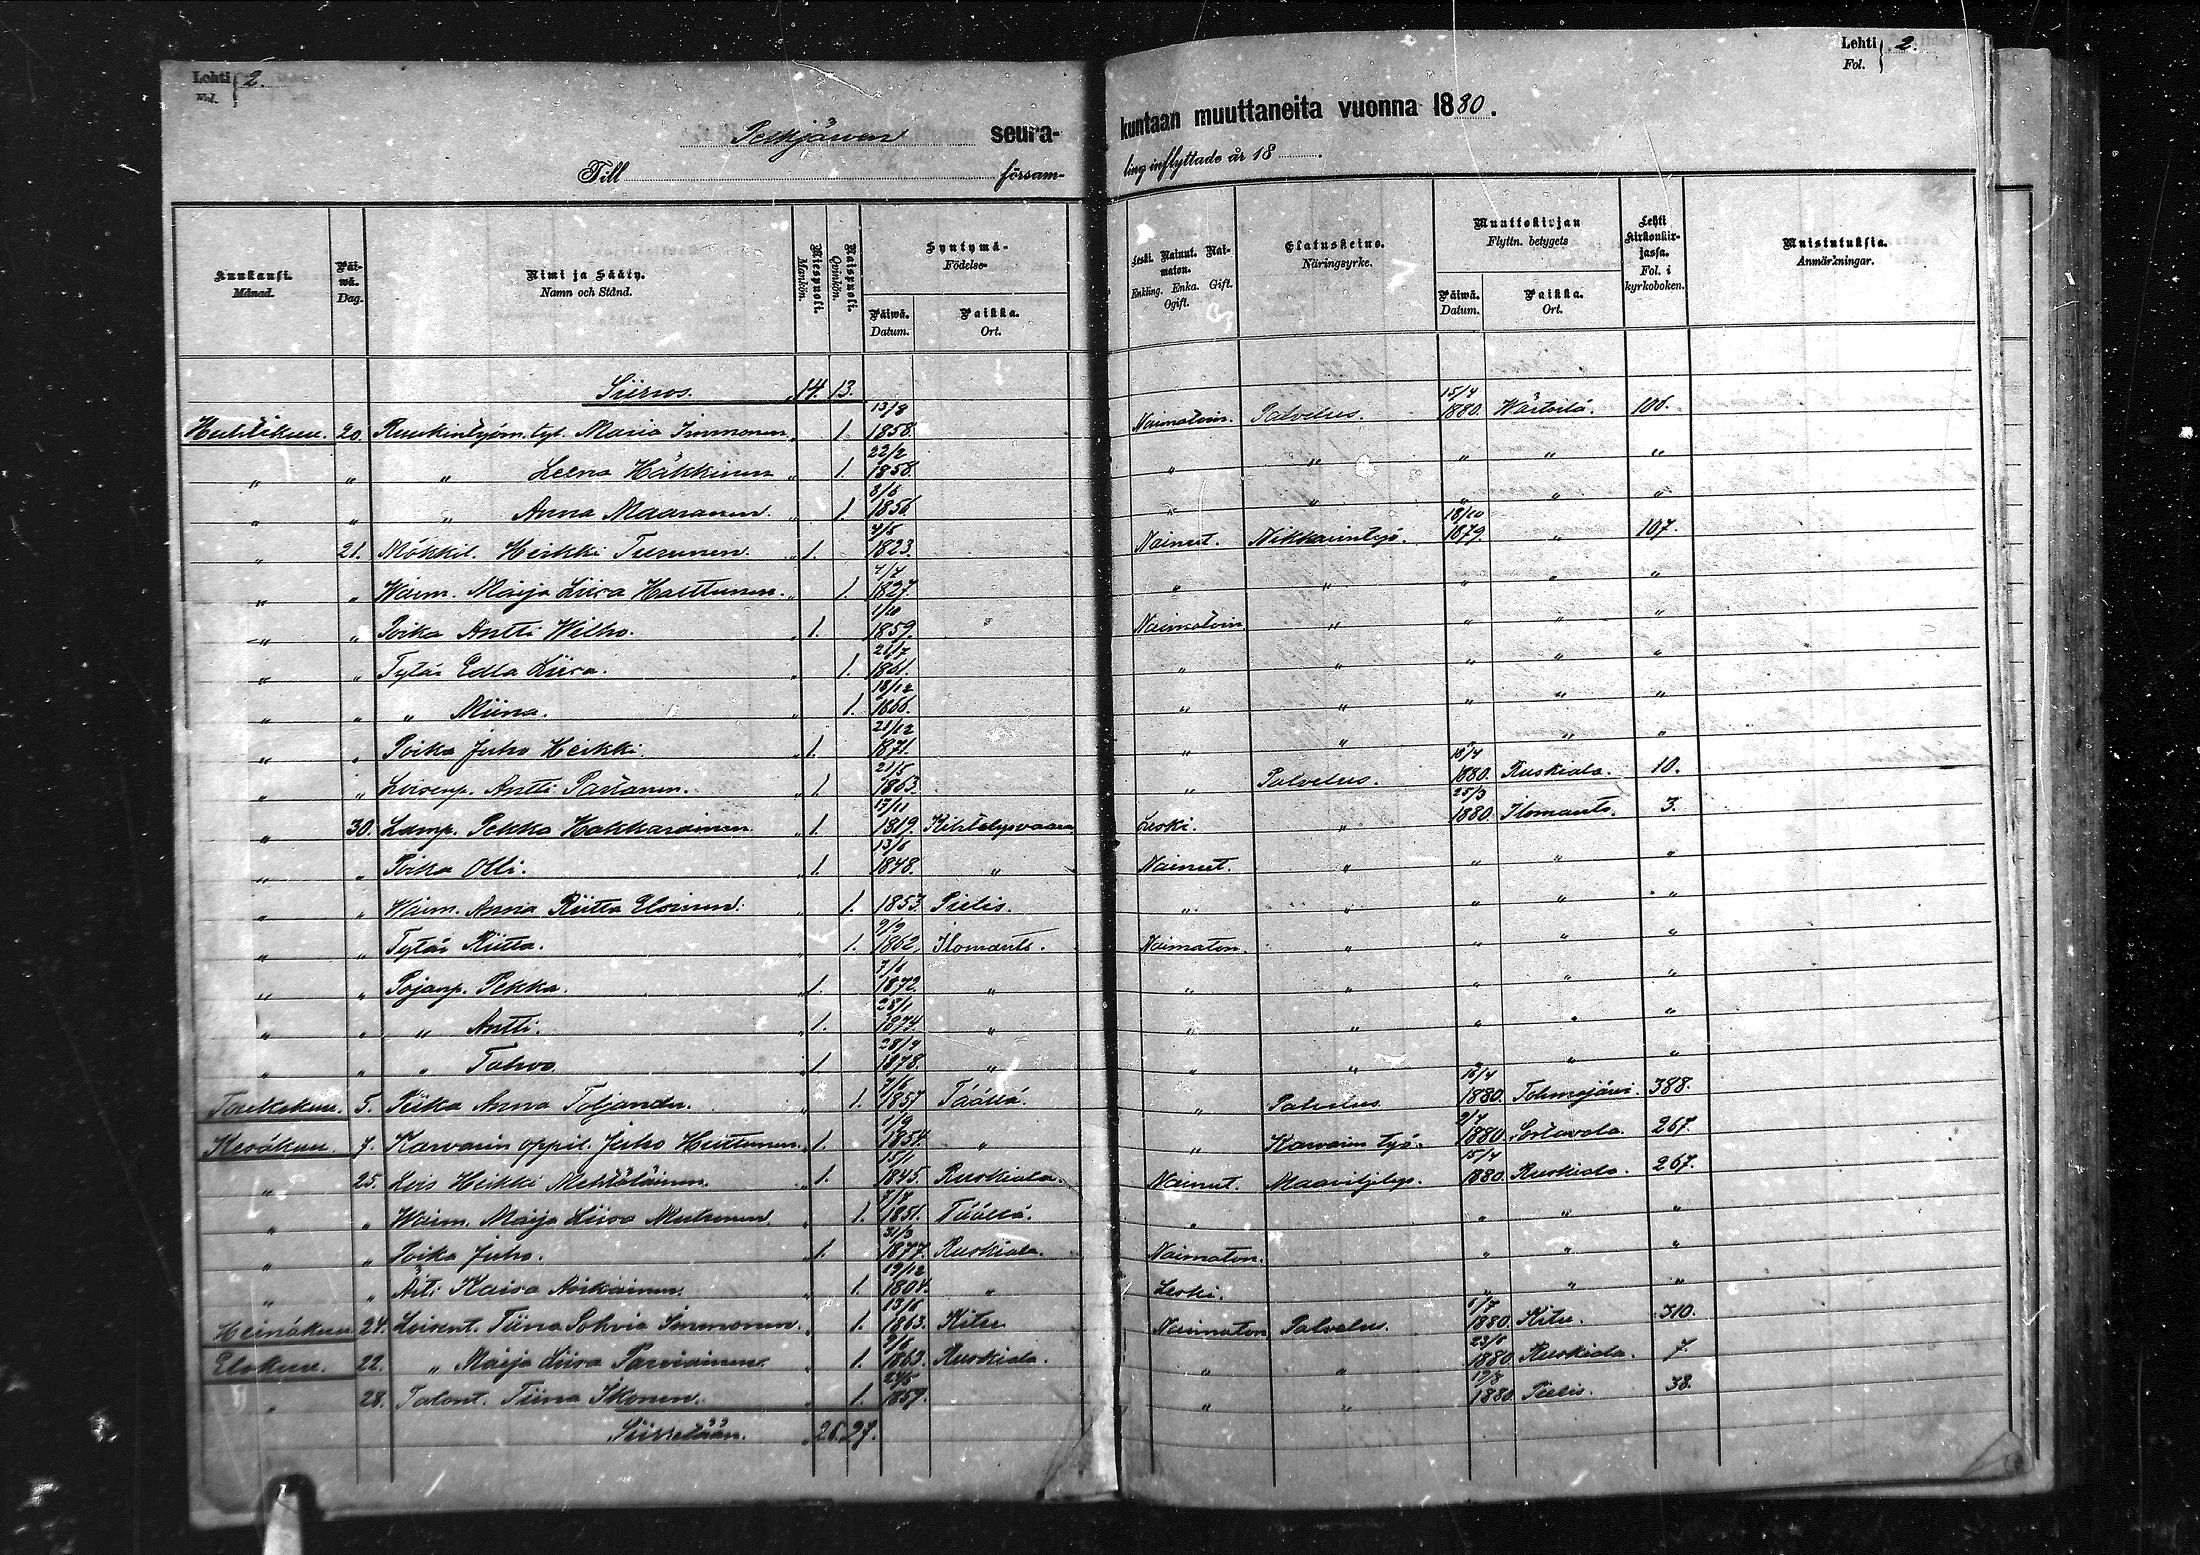 Lehti 2.
Fol.
Lehti 2.
Fol.
Pelkjärven seurakuntaan muuttaneita vuonna 1880.
Till församling inflyttade år 18
Kuukausi. Månad.
Päiwä. Dag.
Nimi ja Sääty. Namn och Stånd.
Miespuoli. Mankön.
Naispuoli. Qvinkön.
Syntymä- Födelse-
Päiwä. Datum.
Paikka. Ort.
Leski. Nainut. Naimaton.
Enkling. Enka. Gift. Ogift.
Elatuskeino. Näringsyrke.
Muuttokirjan Flyttn. betygets
Päiwä. Datum.
Paikka. Ort.
Lehti kirkonkirjassa. Fol. i kyrkoboken.
Muistutuksia. Anmärkningar.
Siirros. 14. 13.
Huhtikuu. 20. Ruukintyöm. tyt. Maria Immonen 1. 13/8 1858. Naimatoin. Palvelus. 15/4 1880. Wärtsilä. 106.
" " " Leena Häkkinen " 1. 22/2 1858. " " " " "
" " " Anna Maaranen. " 1. 1856 " " " " "
" 21. Mökkil. Heikki Turunen. 1. 1823. Nainut. Nikkarintyö. 18/10 1879. " 107.
" " Waim. Maija Liisa Halttunen. " 1. 1827. " " " " "
" " Poika Antti Wilho. 1. 1/10 1859. Naimatoin " " " "
" " Tytär Edla Liisa. " 1. 21/7 1861. " " " " "
" " " Miina. " 1. 18/12 1866. " " " " "
" " Poika Juho Heikki. 1. 21/12 1871. " " " " "
" " Loisenp. Antti Partanen. 1. 21/5 1863. " Palvelus. 18/4 1880. Ruskiala. 10.
" 30. Lamp. Pekka Hakkarainen. 1. 17/11 1819. Kihtelysvaara Leski. " 25/3 1880. Ilomants. 3.
" " Poika Olli. 1. 1848. " Nainut. " " " "
" " Waim. Anna Riitta Elorinen. 1. 1853. Pielis. " " " " "
" " Tytär Riitta. 1. 1862. Ilomants. Naimaton. " " " "
" " Pojanp. Pekka. 1. 1872. " " " " " "
" " " Antti. 1. 28/1 1874. " " " " " "
" " " Tahvo. 1. 28/9 1878. " " " " "
Toukokuu. 5. Piika Anna Toljander. 1. 1857 Täällä. " Palvelus 1880. Tohmajärvi. 388.
Kesäkuu. 7. Karvarin oppil. Juho Hiittunen. 1. 1/9 1854. " " Karvarin työ. 1880. Sortavala. 267.
" 25. Lois Heikki Mehtäläinen. 1. 15/1 1845. Ruskiala. Nainut. Maanviljelys. 15/4 1880. Ruskiala. 267.
" " Waim. Maija Liisa Muhonen. 1. 1851. Täällä. " " " "
" " Poika Juho. 1. 31/3 1877. Ruskiala. Naimaton. " " "
" " Äiti Kaisa Asikainen. 1. 19/12 1804. " Leski. " " "
Heinäkuu 24. Loisent. Tiina Sohvia Immonen. 1. 1863. Kitee Naimaton Palvelus. 1880. Kitee. 310.
Elokuu. 22. " Maija Liisa Parviainen. 1. 1863. Ruskiala. " " 1880. Ruskiala. 7.
" 28. Talont. Tiina Ikonen. 1. 1859. " " 1880. Pielis. 38.
Siirretään. 26. 27.